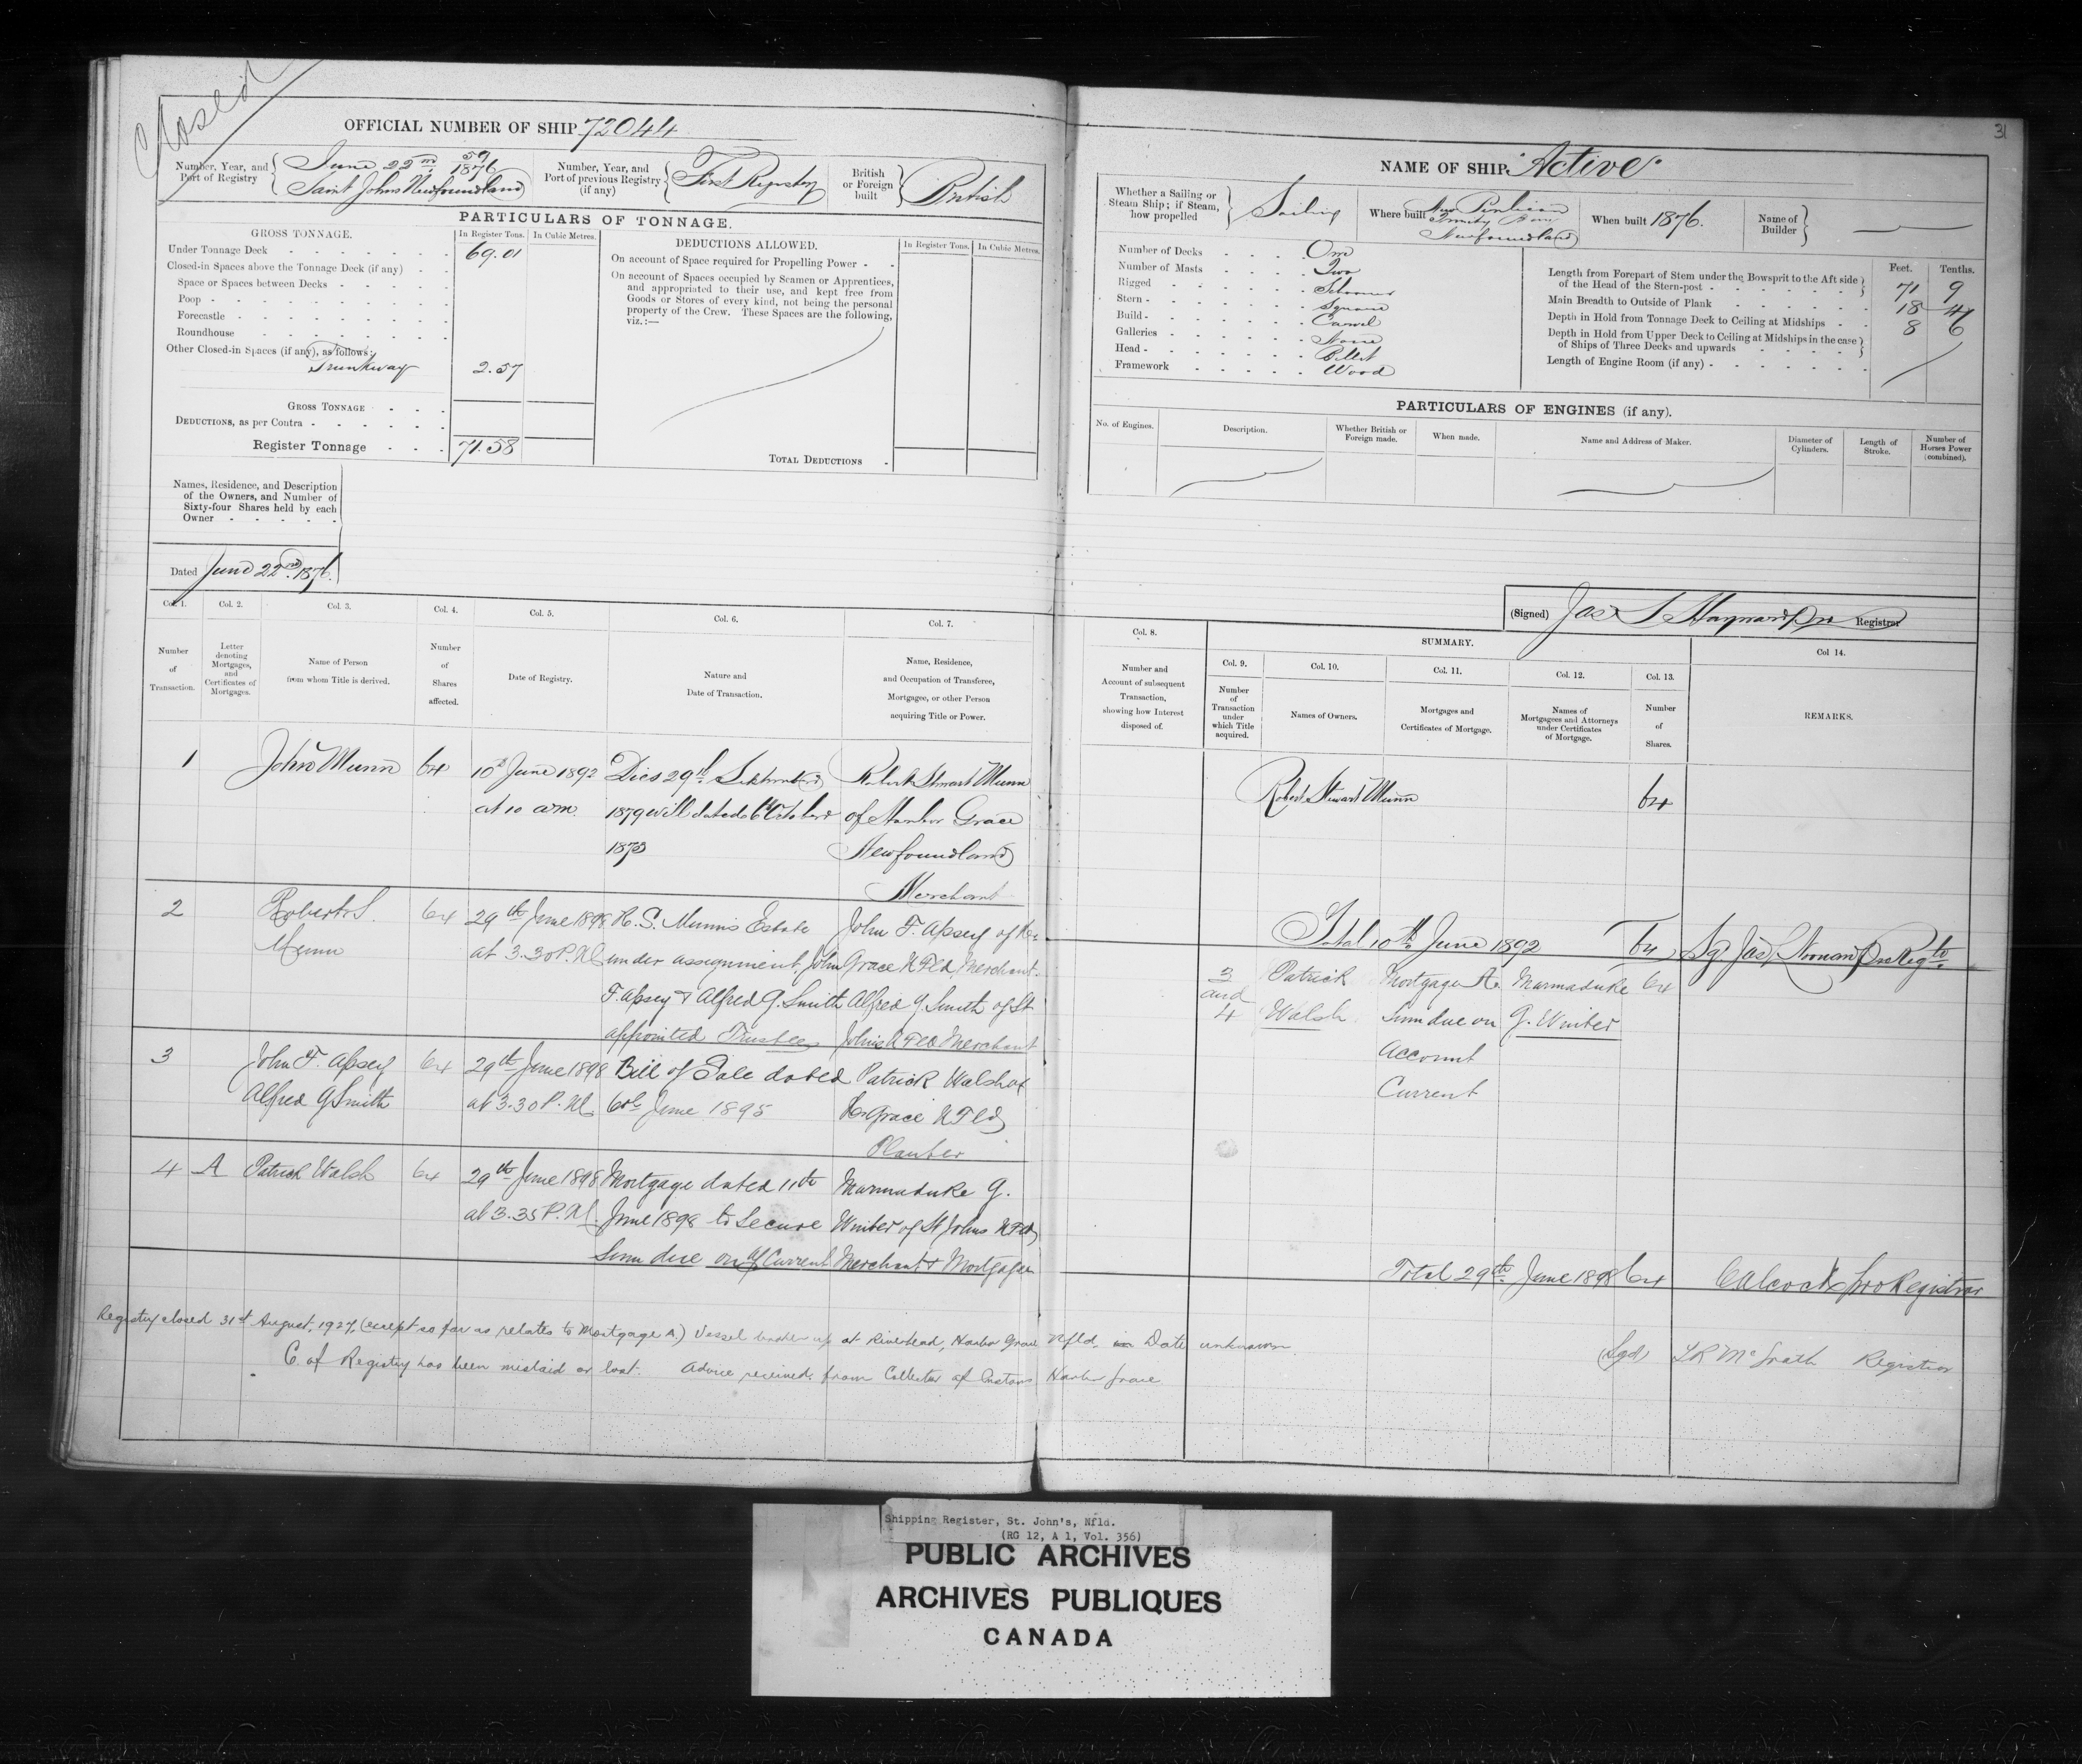 Closed
31
OFFICIAL NUMBER OF SHIP 72044
Number, Year, and Port of Registry
59
June 22nd 1876
Saint Johns Newfoundland
Number, Year, and Port of previous Registry (if any)
First Registry
British or Foreign built
British
PARTICULARS OF TONNAGE.
GROSS TONNAGE.
In Register Tons.
In Cubic Metres.
Under Tonnage Deck 69.01
Closed-in Spaces above the Tonnage Deck (if any)
Space or Spaces between Decks
Poop
Forecastle
Roundhouse
Other Closed-in Spaces (if any), as follows:
Trunkway 2.57
GROSS TONNAGE
DEDUCTIONS, as per Contra
Register Tonnage 71.58
DEDUCTIONS ALLOWED.
In Register Tons.
In Cubic Metres.
On account of Space required for Propelling Power
On account of Spaces occupied by Seamen or Apprentices,
and appropriated to their use, and kept free from
Goods or Stores of every kind, not being the personal
property of the Crew. These Spaces are the following,
viz.:—
TOTAL DEDUCTIONS
Names, Residence, and Description
of the Owners, and Number of
Sixty-four Shares held by each
Owner
Dated June 22nd 1876.
NAME OF SHIP "Active"
Whether a Sailing or
Steam Ship; if Steam,
how propelled
Sailing
Where built
New Perlican
Trinity Bay
Newfoundland
When built 1876.
Name of Builder
Number of Decks One
Number of Masts Two
Rigged Schooner
Stern Square
Build Carvel
Galleries None
Head Billet
Framework Wood
Feet. Tenths.
Length from Forepart of Stem under the Bowsprit to the Aft side
of the Head of the Stern-post 71 9
Main Breadth to Outside of Plank 18 4
Depth in Hold from Tonnage Deck to Ceiling at Midships 8 6
Depth in Hold from Upper Deck to Ceiling at Midships in the case
of Ships of Three Decks and upwards
Length of Engine Room (if any)
PARTICULARS OF ENGINES (if any).
No. of Engines.
Description.
Whether British or Foreign made.
When made.
Name and Address of Maker.
Diameter of Cylinders.
Length of Stroke.
Number of Horses Power (combined).
(Signed) Jas S Hayward Pro Registrar
Col. 1.
Col. 2.
Col. 3.
Col. 4.
Col. 5.
Col. 6.
Col. 7.
Number of Transaction.
Letter denoting Mortgages, and Certificates of Mortgages.
Name of Person from whom Title is derived.
Number of Shares affected.
Date of Registry.
Nature and Date of Transaction.
Name, Residence, and Occupation of Transferee, Mortgagee, or other Person acquiring Title or Power.
Col. 8.
SUMMARY.
Col. 9.
Col. 10.
Col. 11.
Col. 12.
Col. 13.
Col 14.
Number and Account of subsequent Transaction, showing how Interest disposed of.
Number of Transaction under which Title acquired.
Names of Owners.
Mortgages and Certificates of Mortgage.
Names of Mortgagees and Attorneys under Certificates of Mortgage.
Number of Shares.
REMARKS.
1 John Munn 64 10th June 1892 Dies 29th September Robert Stewart Munn
at 10 a.m. 1879 Will dated 6th October of Harbor Grace
1873 Newfoundland
Merchant
2 Robert S. 64 29th June 1898 R. S. Munn's Estate John F. Apsey of Hr
Munn at 3.30 P.M. under assignment, John Grace NFld Merchant.
F. Apsey & Alfred G. Smith Alfred G. Smith of St
appointed Trustees Johns NFld Merchant
3 John F. Apsey 64 29th June 1898 Bill of Sale dated Patrick Walsh of
Alfred G Smith at 3.30 P.M. 6th June 1895 Hr Grace NFld
Planter
4 A Patrick Walsh 64 29th June 1898 Mortgage dated 11th Marmaduke G.
at 3.35 P.M. June 1898 to Secure Winter of St Johns NFld
Sum due on a/c Current Merchant & Mortgagee
Robert Stewart Munn 64
Total 10th June 1892 64 Sg Jas Noonan Pro Regtr
3 and 4 Patrick Mortgage A. Marmaduke 64
Walsh Sum due on G. Winter
Account
Current
Total 29th June 1898 64 C Alcock pro Registrar
Registry closed 31st August, 1927, (except so far as relates to Mortgage A.) Vessel broken up at Riverhead, Harbor Grace Nfld. in Date unknown.
C of Registry has been mislaid or lost. Advice received from Collector of Customs Harbor Grace
(Sgd) L R McGrath Registrar
Shipping Register, St. John's, Nfld.
(RG 12, A 1, Vol. 356)
PUBLIC ARCHIVES
ARCHIVES PUBLIQUES
CANADA